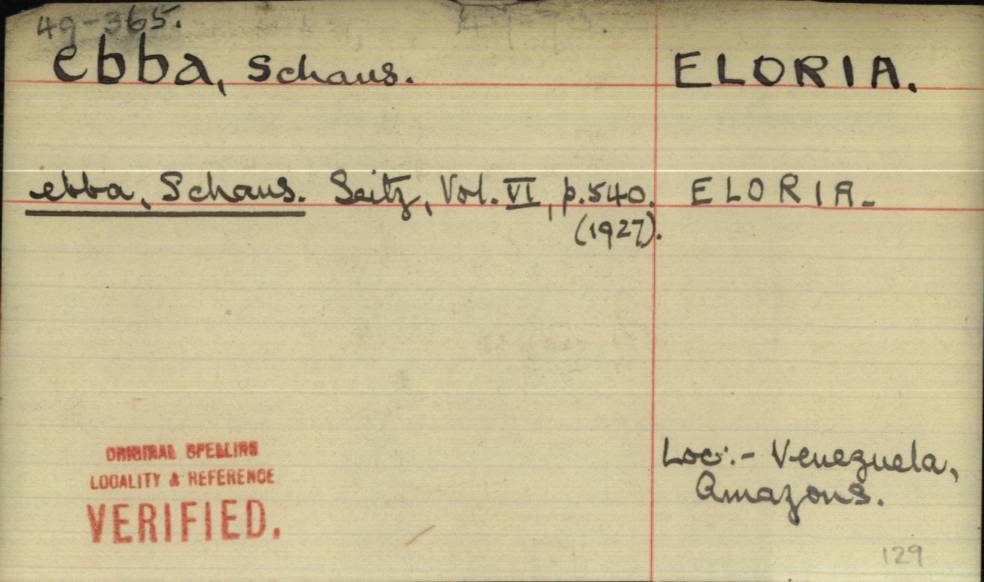 49-365.
ebba, Schaus. ELORIA.
ebba, Schaus. Seitz, Vol. VI, p.540. ELORIA.
(1927).
ORIGINAL SPELLING
LOCALITY & REFERENCE
VERIFIED.
Loc:- Venezuela,
Amazons.
129